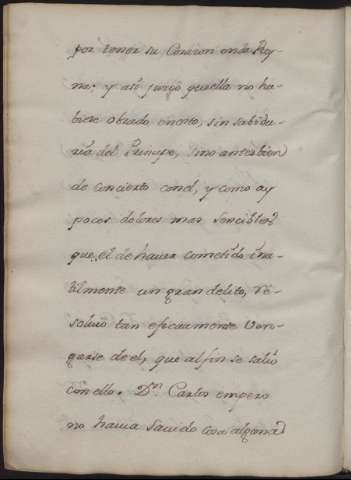 por tener su Corazon en la Rey-
na: y asi juzgò que ella no ha-
biese obrado en esto, sin sabidu-
ria del Principe, sino antes bien
de concierto con el, y como ay
pocos dolores mas sencibles,
que el de haver cometido inu-
tilmente un gran delito, re-
solviò tan eficazmente Ven-
garse de el, que al fin se saliò
con ello. Dⁿ. Carlos empero
no havia savido cosa alguna